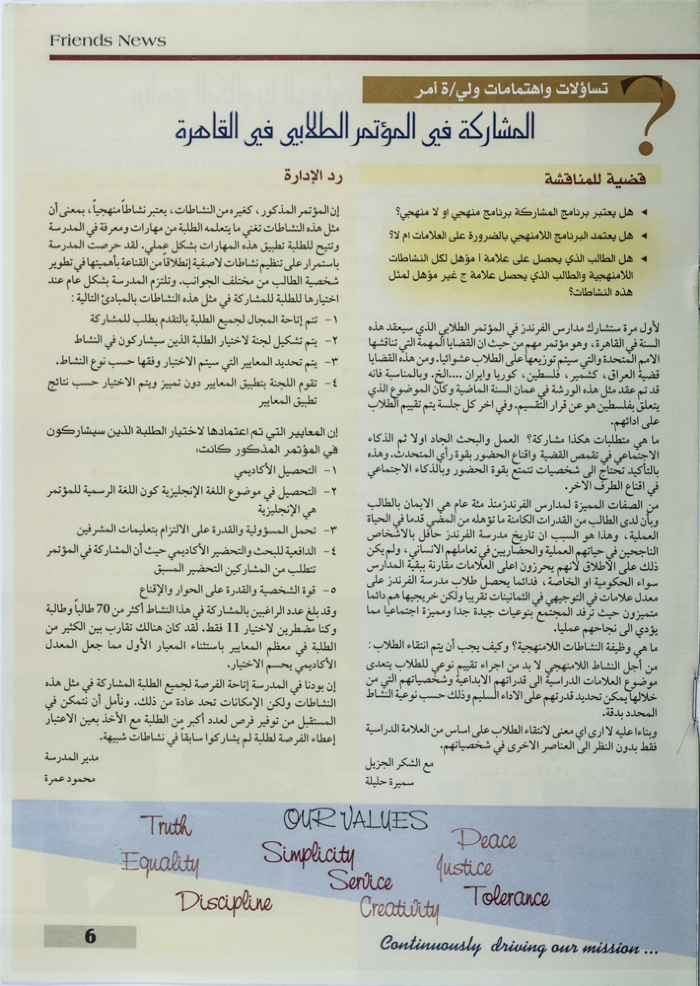 Friends News
تساؤلات واهتمامات ولي/ة أمر
?
المشاركة في المؤتمر الطلابي في القاهرة
قضية للمناقشة
هل يعتبر برنامج المشاركة برنامج منهجي او لا منهجي؟
هل يعتمد البرنامج اللامنهجي بالضرورة على العلامات ام لا؟
هل الطالب الذي يحصل على علامة ا مؤهل لكل النشاطات
اللامنهجية والطالب الذي يحصل علامة ج غير مؤهل لمثل
هذه النشاطات؟
لأول مرة ستشارك مدارس الفرندز في المؤتمر الطلابي الذي سيعقد هذه
السنة في القاهرة، وهو مؤتمر مهم من حيث ان القضايا المهمة التي تناقشها
الامم المتحدة والتي سيتم توزيعها على الطلاب عشوائيا. ومن هذه القضايا
قضية العراق، كشمير، فلسطين، كوريا وايران .....الخ. وبالمناسبة فانه
قد تم عقد مثل هذه الورشة في عمان السنة الماضية وكان الموضوع الذي
يتعلق بفلسطين هو عن قرار التقسيم. وفي اخر كل جلسة يتم تقييم الطلاب
على ادائهم.
ما هي متطلبات هكذا مشاركة؟ العمل والبحث الجاد اولا ثم الذكاء
الاجتماعي في تقمص القضية واقناع الحضور بقوة رأي المتحدث. وهذه
بالتأكيد تحتاج الى شخصيات تتمتع بقوة الحضور وبالذكاء الاجتماعي
في اقناع الطرف الاخر.
من الصفات المميزة لمدارس الفرندز منذ مئة عام هي الايمان بالطالب
وبأن لدى الطالب من القدرات الكامنة ما تؤهله من المضي قدما في الحياة
العملية، وهذا هو السبب ان تاريخ مدرسة الفرندز حافل بالاشخاص
الناجحين في حياتهم العملية والحضاريين في تعاملهم الانساني، ولم يكن
ذلك على الاطلاق لانهم يحرزون اعلى العلامات مقارنة ببقية المدارس
سواء الحكومية او الخاصة، فدائما يحصل طلاب مدرسة الفرندز على
معدل علامات في التوجيهي في الثمانينات تقريبا ولكن خريجيها هم دائما
متميزون حيث ترفد المجتمع بنوعيات جيدة جدا ومميزة اجتماعيا مما
يؤدي الى نجاحهم عمليا.
ما هي وظيفة النشاطات اللامنهجية؟ وكيف يجب أن يتم انتقاء الطلاب :
من أجل النشاط اللامنهجي لا بد من اجراء تقييم نوعي للطلاب يتعدى
موضوع العلامات الدراسية الى قدراتهم الابداعية وشخصياتهم التي من
خلالها يمكن تحديد قدرتهم على الاداء السليم وذلك حسب نوعية النشاط
المحدد بدقة.
وبناءا عليه لا ارى اي معنى لانتقاء الطلاب على اساس من العلامة الدراسية
فقط بدون النظر الى العناصر الاخرى في شخصياتهم.
مع الشكر الجزيل
سميرة حليلة
رد الإدارة
إن المؤتمر المذكور، كغيره من النشاطات، يعتبر نشاطاً منهجياً، بمعنى أن
مثل هذه النشاطات تغني ما يتعلمه الطلبة من مهارات ومعرفة في المدرسة
وتتيح للطلبة تطبيق هذه المهارات بشكل عملي. لقد حرصت المدرسة
باستمرار على تنظيم نشاطات لاصفية إنطلاقاً من القناعة بأهميتها في تطوير
شخصية الطالب من مختلف الجوانب. وتلتزم المدرسة بشكل عام عند
اختيارها للطلبة للمشاركة في مثل هذه النشاطات بالمبادئ التالية :
١- تتم إتاحة المجال لجميع الطلبة بالتقدم بطلب للمشاركة
٢- يتم تشكيل لجنة لاختيار الطلبة الذين سيشاركون في النشاط
٣- يتم تحديد المعايير التي سيتم الاختيار وفقها حسب نوع النشاط.
٤- تقوم اللجنة بتطبيق المعايير دون تمييز ويتم الاختيار حسب نتائج
تطبيق المعايير
إن المعايير التي تم اعتمادها لاختيار الطلبة الذين سيشاركون
في المؤتمر المذكور كانت:
١- التحصيل الأكاديمي
٢- التحصيل في موضوع اللغة الإنجليزية كون اللغة الرسمية للمؤتمر
هي الإنجليزية
٣- تحمل المسؤولية والقدرة على الالتزام بتعليمات المشرفين
٤- الدافعية للبحث والتحضير الأكاديمي حيث أن المشاركة في المؤتمر
تتطلب من المشاركين التحضير المسبق
٥- قوة الشخصية والقدرة على الحوار والإقناع
وقد بلغ عدد الراغبين بالمشاركة في هذا النشاط أكثر من 70 طالباً وطالبة
وكنا مضطرين لاختيار 11 فقط. لقد كان هنالك تقارب بين الكثير من
الطلبة في معظم المعايير باستثناء المعيار الأول مما جعل المعدل
الأكاديمي يحسم الاختيار.
إن بودنا في المدرسة إتاحة الفرصة لجميع الطلبة المشاركة في مثل هذه
النشاطات ولكن الإمكانات تحد عادة من ذلك. ونأمل أن نتمكن في
المستقبل من توفير فرص لعدد أكبر من الطلبة مع الأخذ بعين الاعتبار
إعطاء الفرصة لطلبة لم يشاركوا سابقاً في نشاطات شبيهة.
مدير المدرسة
محمود عمرة
OUR VALUES
Truth
Peace
Equality
Simplicity
Justice
Service
Discipline
Creativity
Tolerance
Continuously driving our mission ...
6